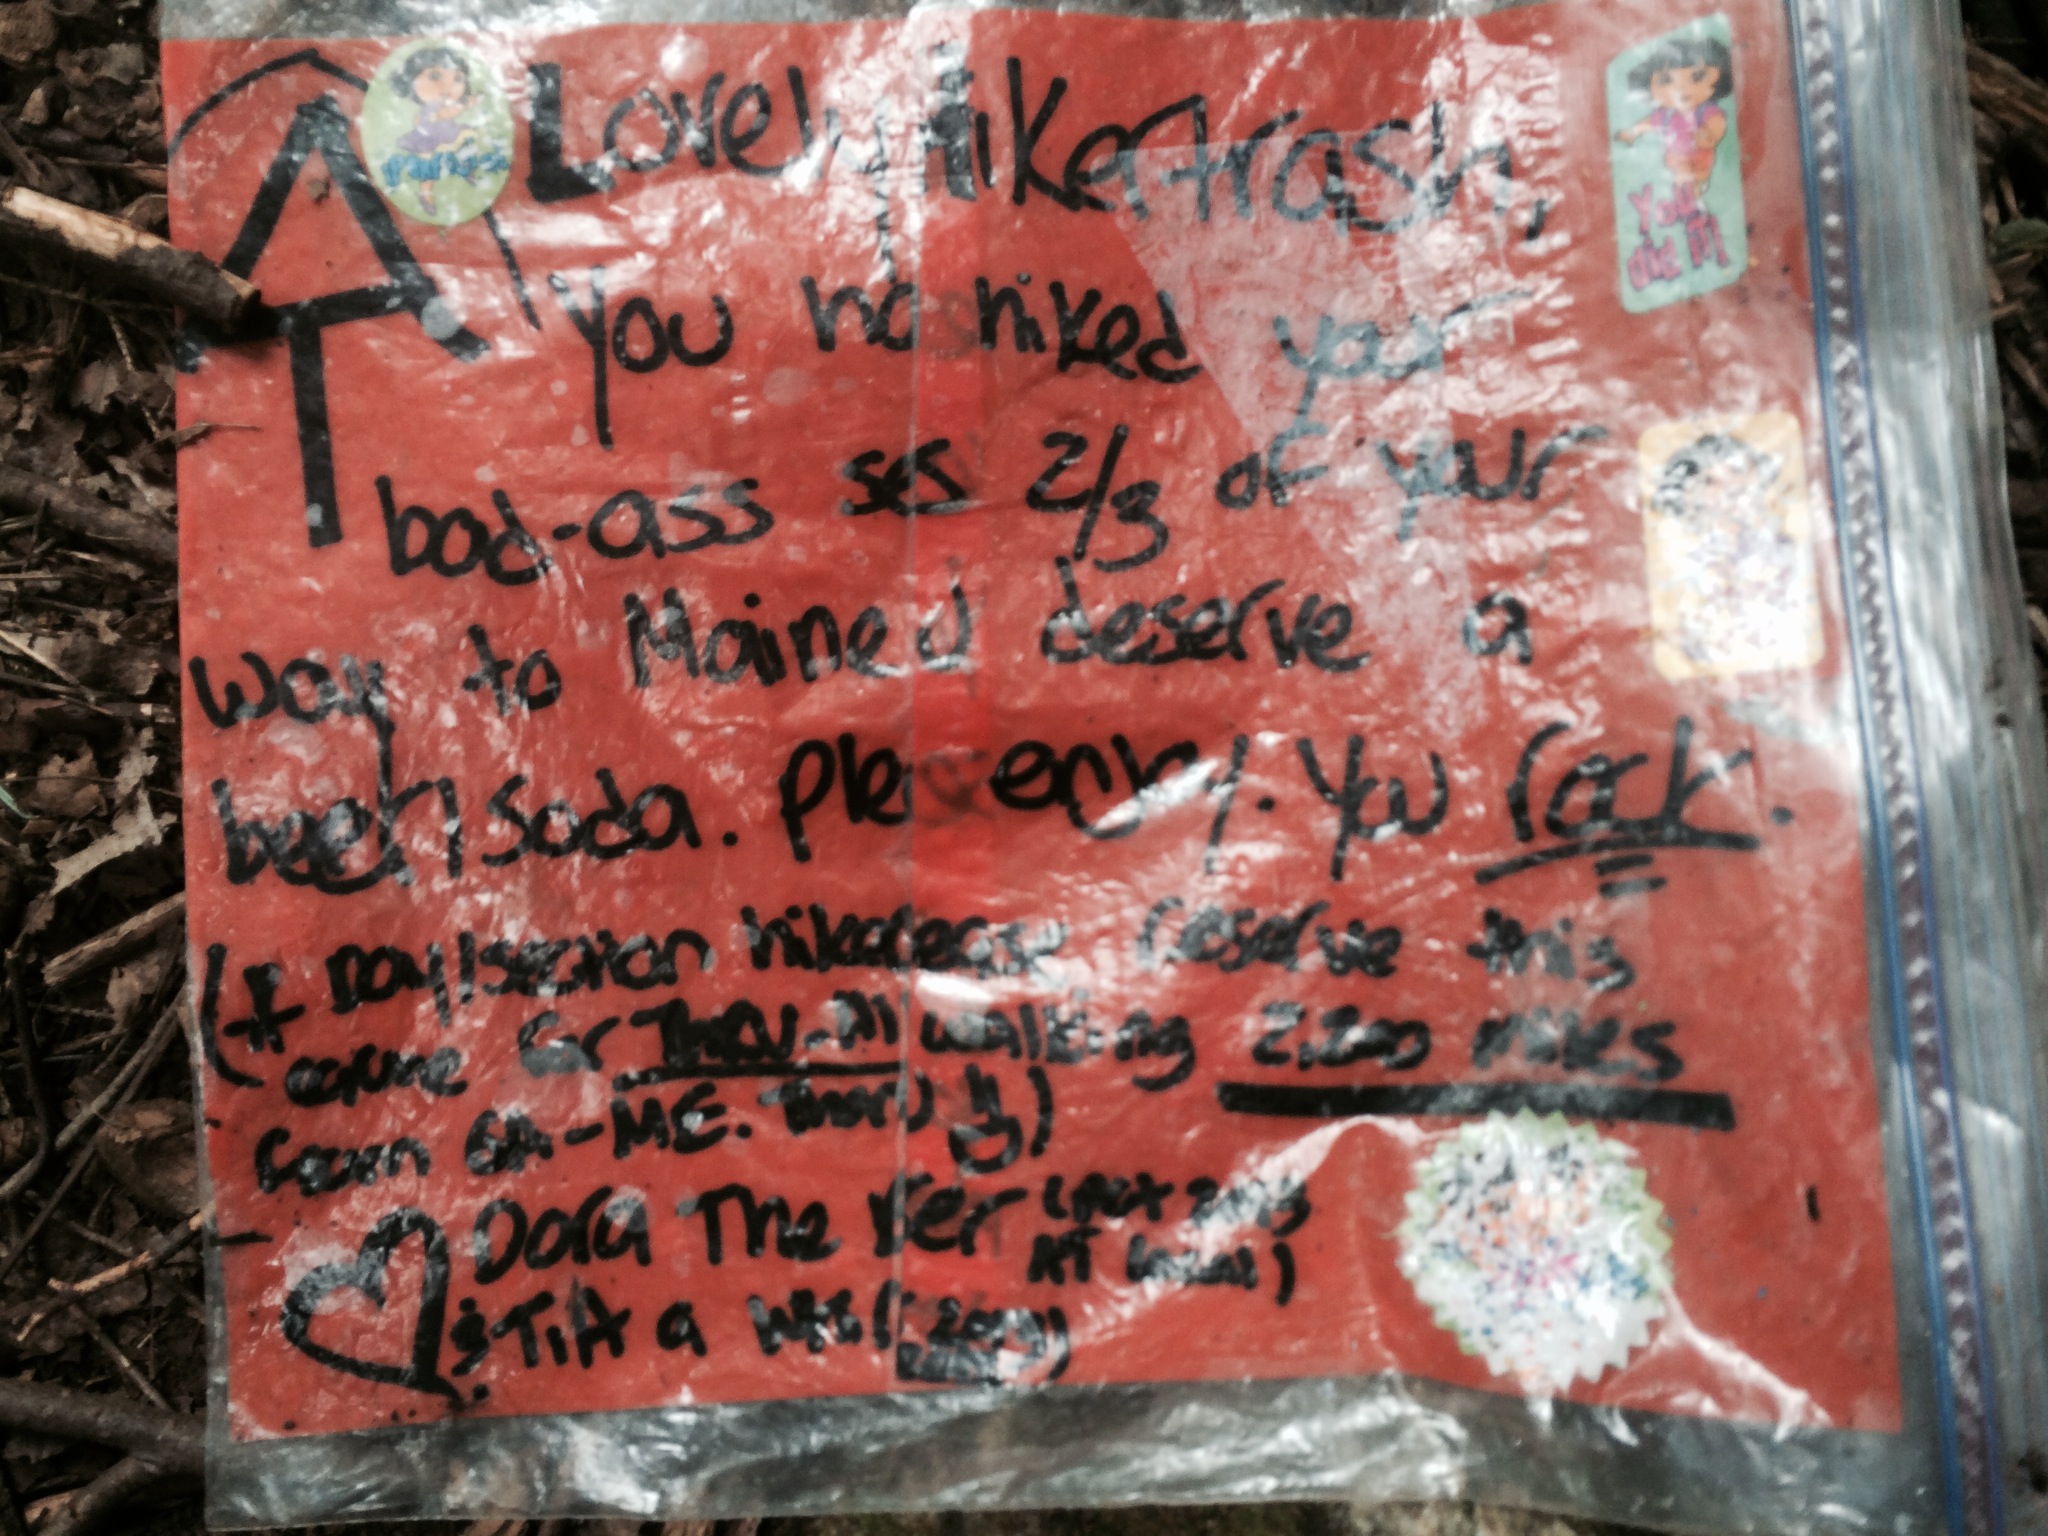 AT
Lovely Hikertrash,
You ha hiked your
bad-ass ses 2/3 of your
way to Maine d deserve a
beer/soda. Please enjoy! You rock.
(+ Day/section hikers deserve this
for Thru-AT walking 2,200 miles
from GA-ME. Than U)
Dora The rer
AT
& Tilt a
You did it!